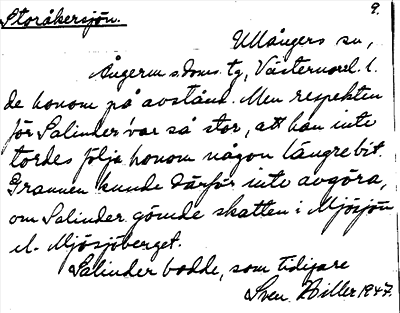 Storåkersjön.
9.
Ullångers sn,
Ångerm. s. doms. tg, Västernorrl. l.
de honom på avstånd. Men respekten
för Salinder var så stor, att han inte
tordes följa honom någon längre bit.
Grannen kunde därför inte avgöra,
om Salinder gömde skatten i Mjösjön
el. Mjösjöberget.
Salinder bodde, som tidigare
Sven Hiller 1947.